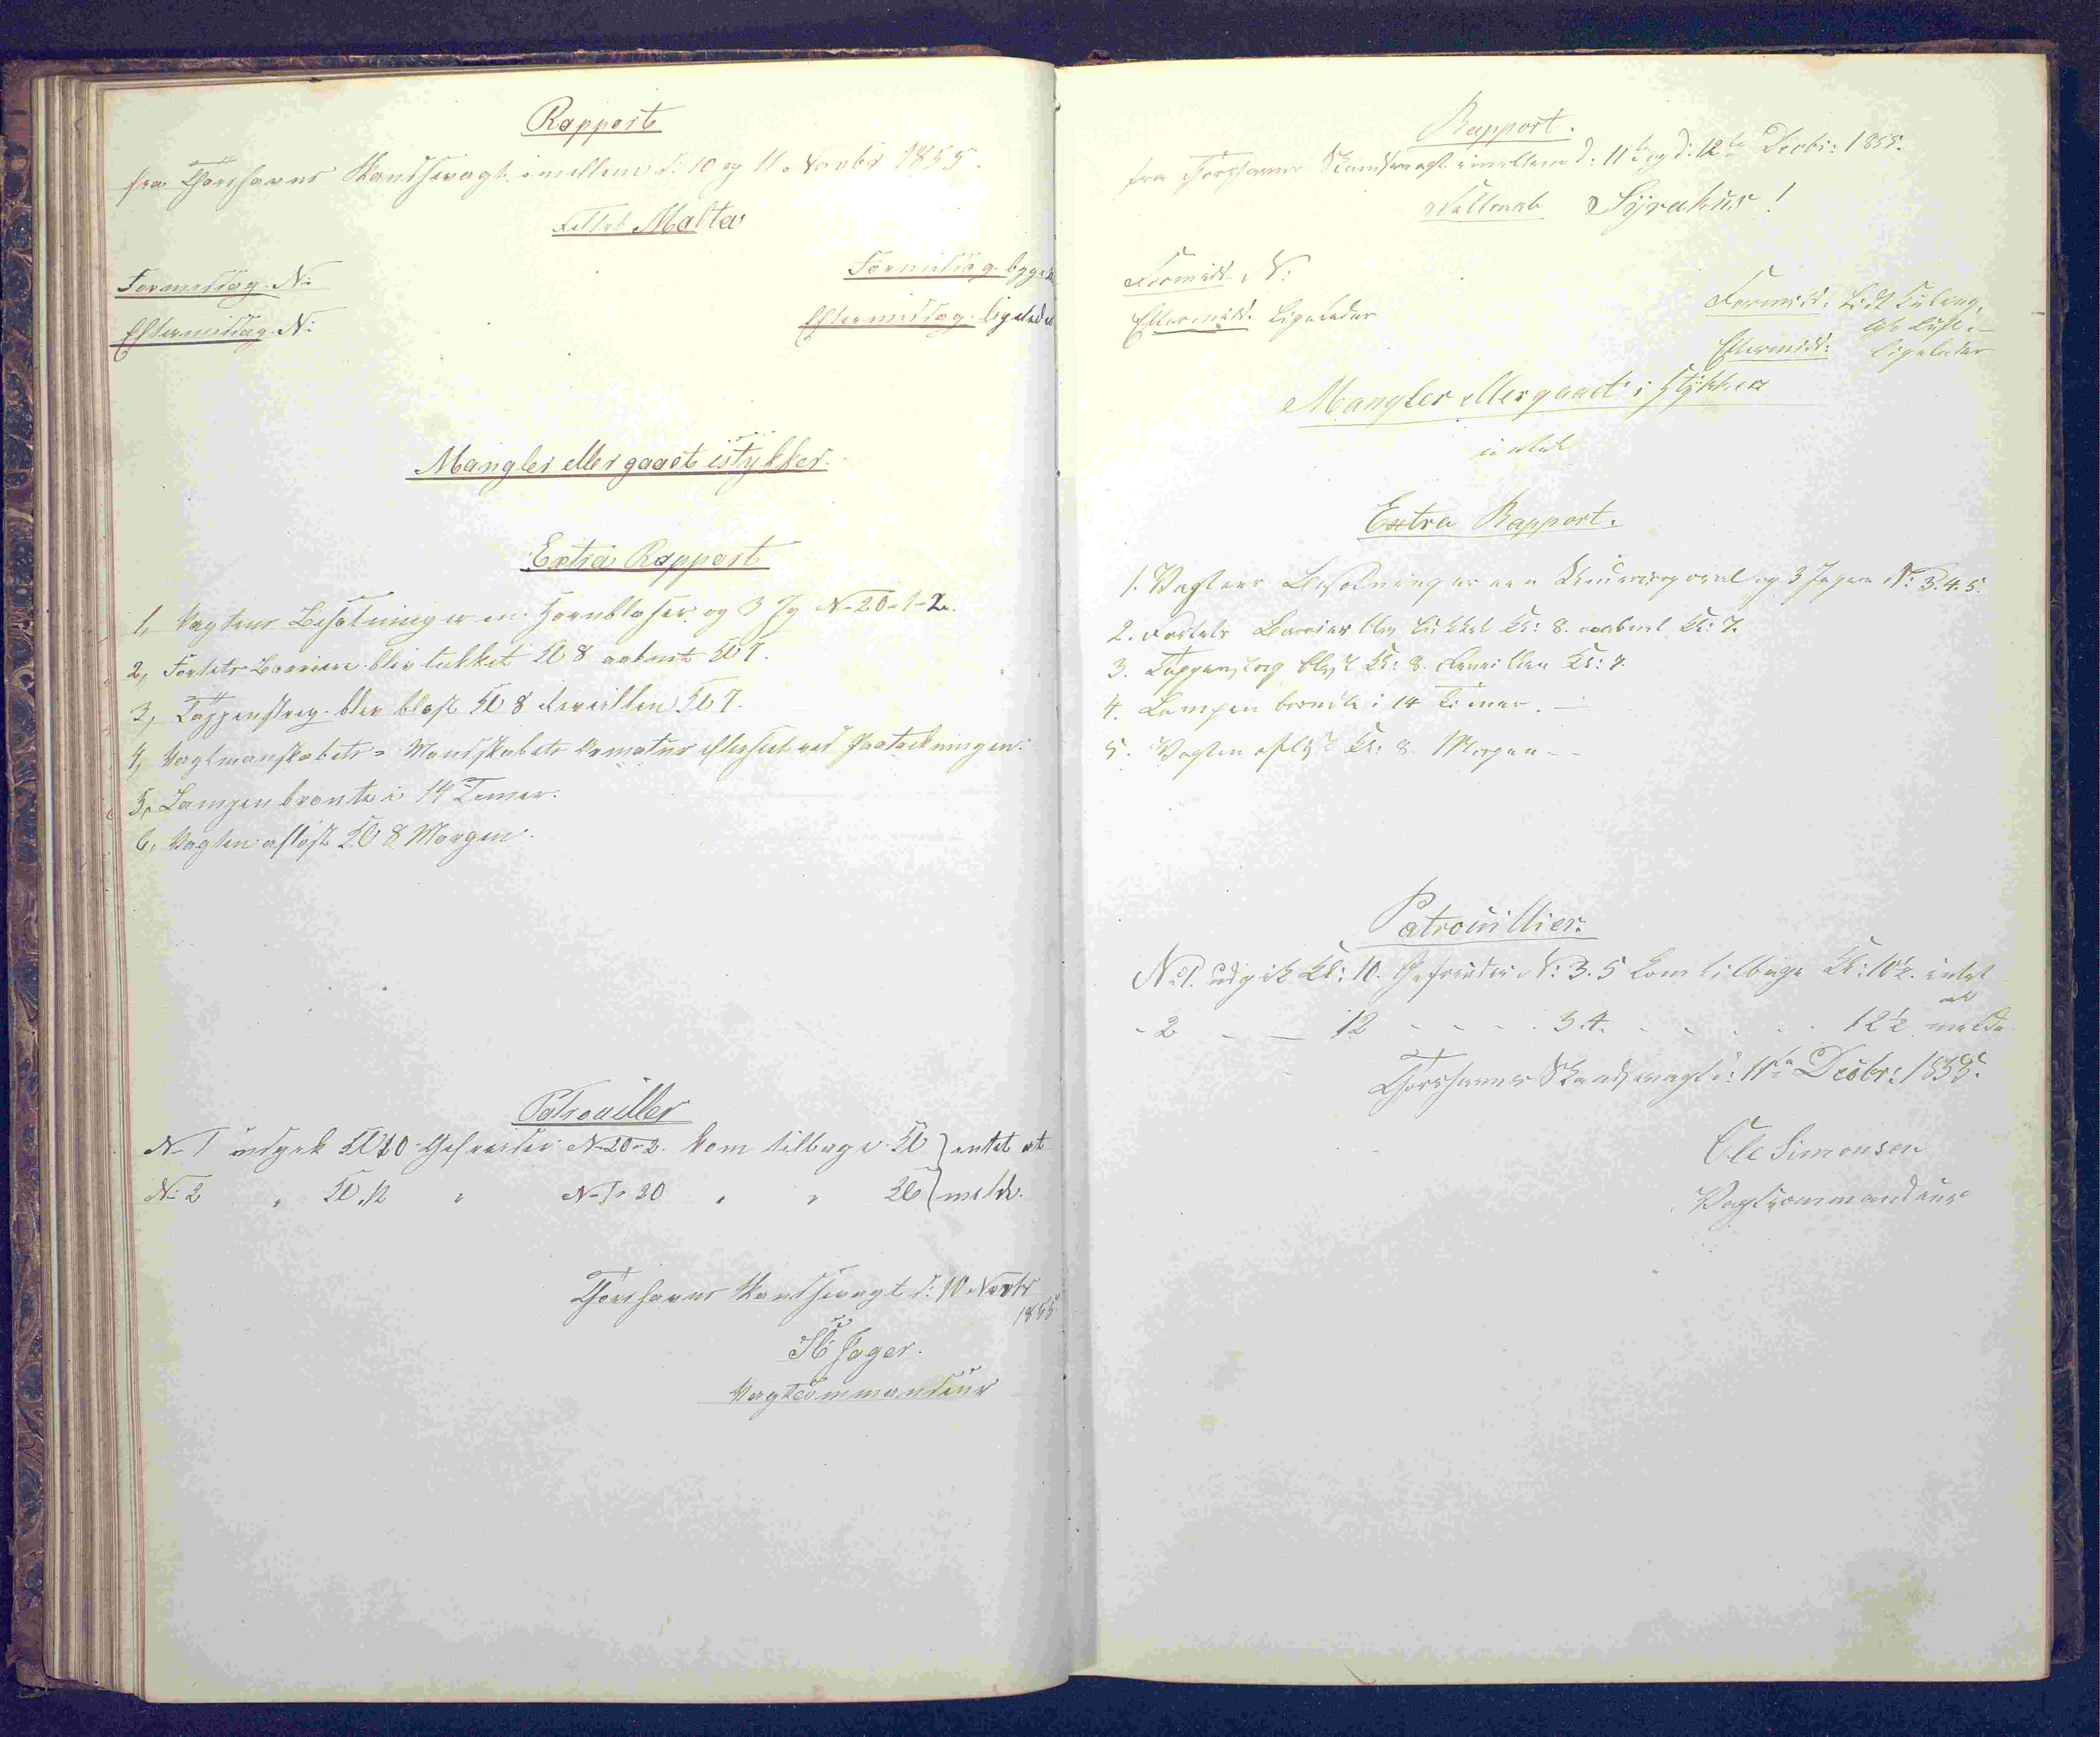 Rapport
fra Thorshavns Skandsevagt imellem d: 10 og 11 Novbr 1855.
Feltrob Malta
Formiddag N:
Formiddag bygede
Eftermiddag N:
Eftermiddag ligeledes
Mangler eller gaaet istykker.
Extra Rapport
1, Vagtens Besætning er en Hornblæser og 3 Jg N 20-1-2.
2, Fortets Barriere blev lukket Kl 8 aabnet Kl 7.
3, Tappenstreg blev blæst Kl 8 Reveillen Kl 7.
4, Vagtmandskabets Mandskabets Armatur efterseet ved Paatrædningen.
5, Lampen brændte i 14 Timer.
6, Vagten afløst Kl 8 Morgen.
Patrouiller
N 1 udgik Kl 10 Gefreider N 20-2. kom tilbage Kl } intet at
N: 2 " Kl 12 " N 1-20 " " Kl } melde.
Thorshavns Skandsevagt d: 10 Novbr
1855
Jäger.
Vagtcommandeur
Rapport.
fra Thorshavns Skandsevagt imellem d: 11te og d: 12te Decbr: 1855.
Feltraab Syrakus!
Formidd. N:
Eftermidd. Ligeledes
Formidd: Lidt Kuling,
Luft
Eftermidd: ligeledes
Mangler eller gaaet i Stykker
intet
Extra Rapport.
1. Vagtens Besætning er en Undercorporal og 3 Jægere N: 3. 4. 5.
2. Fortets Barriere blev lukket Kl: 8. aabnet Kl: 7.
3. Tappenstreg blæst Kl: 8. Reveillen Kl: 7.
4. Lampen brændte i 14 Timer.
5. Vagten afløst Kl: 8. Morgen
Patrouillier.
No 1. udgik Kl: 10. Gefreider N: 3. 5 kom tilbage Kl: 10½. intet
at
- 2 - - 12 - - - - 3.4. - - - - - 12½ melde.
Thorshavns Skandsevagt d: 11te Decbr: 1855.
Ole Simonsen
Vagtcommandeur